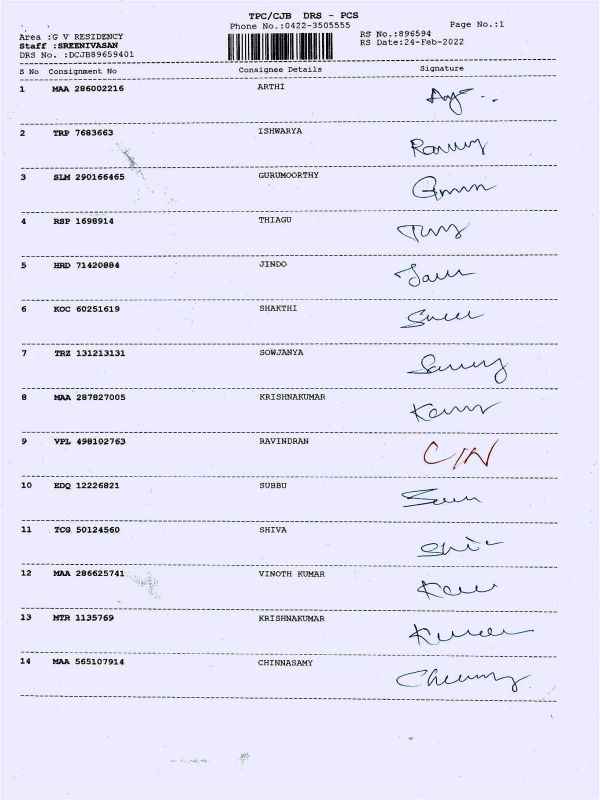 TPC/CJB DRS - PCS
Phone No.:0422-3505555
Page No.:1
Area :G V RESIDENCY
Staff :SREENIVASAN
DRS No. :DCJB89659401
RS No.:896594
RS Date:24-Feb-2022
S No Consignment No Consignee Details Signature
1 MAA 286002216 ARTHI
2 TRP 7683663 ISHWARYA
3 SLM 290166465 GURUMOORTHY
4 RSP 1698914 THIAGU
5 HRD 71420884 JINDO
6 KOC 60251619 SHAKTHI
7 TRZ 131213131 SOWJANYA
8 MAA 287827005 KRISHNAKUMAR
9 VPL 498102763 RAVINDRAN C/N
10 EDQ 12226821 SUBBU
11 TCG 50124560 SHIVA
12 MAA 286625741 VINOTH KUMAR
13 MTR 1135769 KRISHNAKUMAR
14 MAA 565107914 CHINNASAMY